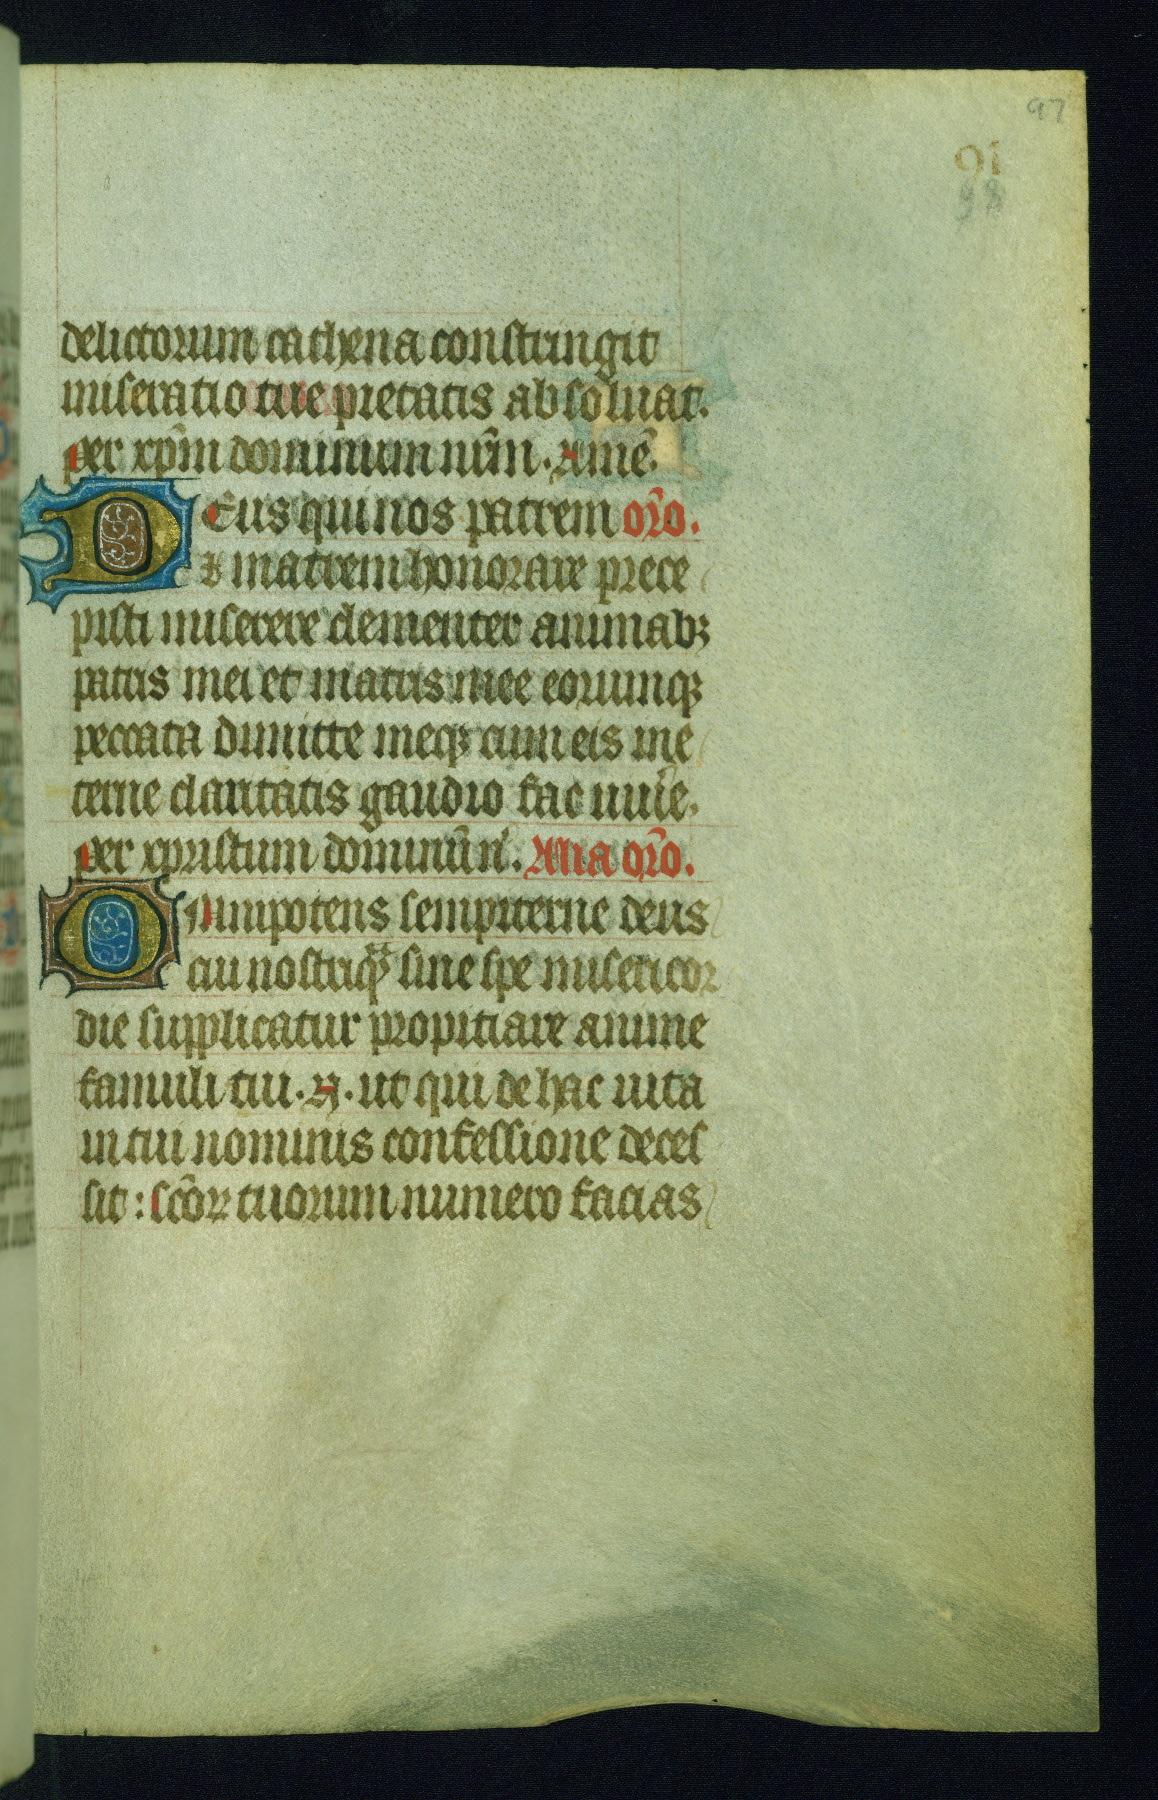 97
91
98
delictorum cathena constringit
miseratio tue pietatis absoluat.
per xp̄m dominum nr̄m. Amē.
Deus qui nos patrem or̄o.
& matrem honorare prece
pisti miserere clementer animabꝫ
patris mei et matris mee eorumqꝫ
peccata dimitte meqꝫ cum eis in e
terne claritatis gaudio fac uiuͥe.
per xpristum dominū n͛. Alia or̄o.
Omnipotens sempiterne deus
cui nostriqͣꝫ sine spe misericor
die supplicatur propitiare anime
famuli tui. N. ut qui de hac uita
in tui nominis confessione deces
sit: sc̄oꝝ tuorum numero facias